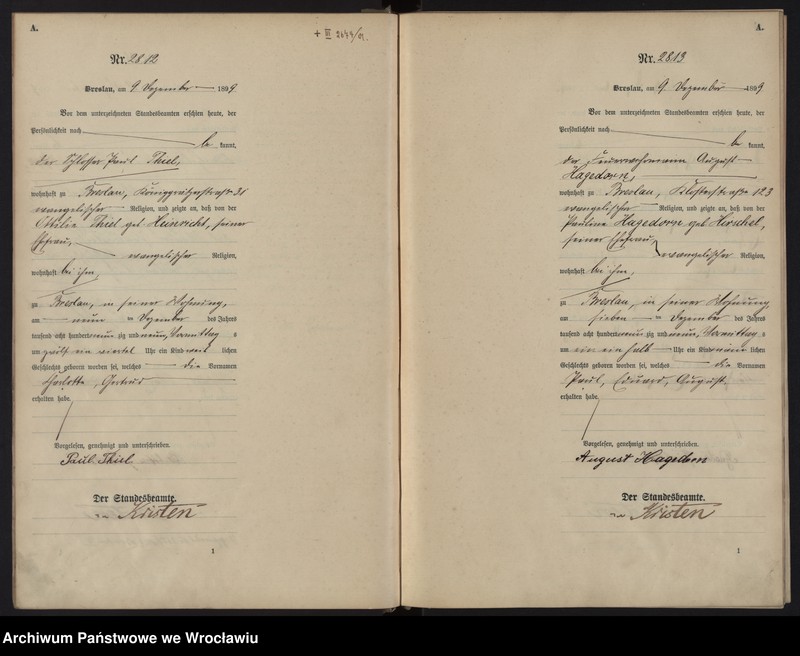 A.
+ III 2644/01.
Nr. 2812
Breslau, am 9. Dezember 1899
Vor dem unterzeichneten Standesbeamten erschien heute, der
Persönlichkeit nach
be kannt,
der Schlosser Paul Thiel,
wohnhaft zu Breslau, Königgrätzerstraße 21
evangelischer Religion, und zeigte an, daß von der
Ottilie Thiel geb. Heinricht, seiner
Ehefrau,
evangelischer Religion,
wohnhaft bei ihm,
zu Breslau, in seiner Wohnung,
am neun ten Dezember des Jahres
tausend acht hundert neun zig und neun, Vormittag s
um zwölf ein viertel Uhr ein Kind weib lichen
Geschlechts geboren worden sei, welches die Vornamen
Charlotte, Gertrud
erhalten habe.
Vorgelesen, genehmigt und unterschrieben.
Paul Thiel
Der Standesbeamte.
Kirsten
1
A.
Nr. 2813
Breslau, am 9. Dezember 1899
Vor dem unterzeichneten Standesbeamten erschien heute, der
Persönlichkeit nach
be kannt,
der Feuerwehrmann August
Hagedorn,
wohnhaft zu Breslau, Klosterstraße 123
evangelischer Religion, und zeigte an, daß von der
Pauline Hagedorn geb. Herschel,
seiner Ehefrau,
evangelischer Religion,
wohnhaft bei ihm,
zu Breslau, in seiner Wohnung
am sieben ten Dezember des Jahres
tausend acht hundert neun zig und neun, Vormittag s
um ein ein halb Uhr ein Kind männ lichen
Geschlechts geboren worden sei, welches die Vornamen
Paul, Eduard, August
erhalten habe.
Vorgelesen, genehmigt und unterschrieben.
August Hagedorn
Der Standesbeamte.
Kirsten
1
Archiwum Państwowe we Wrocławiu